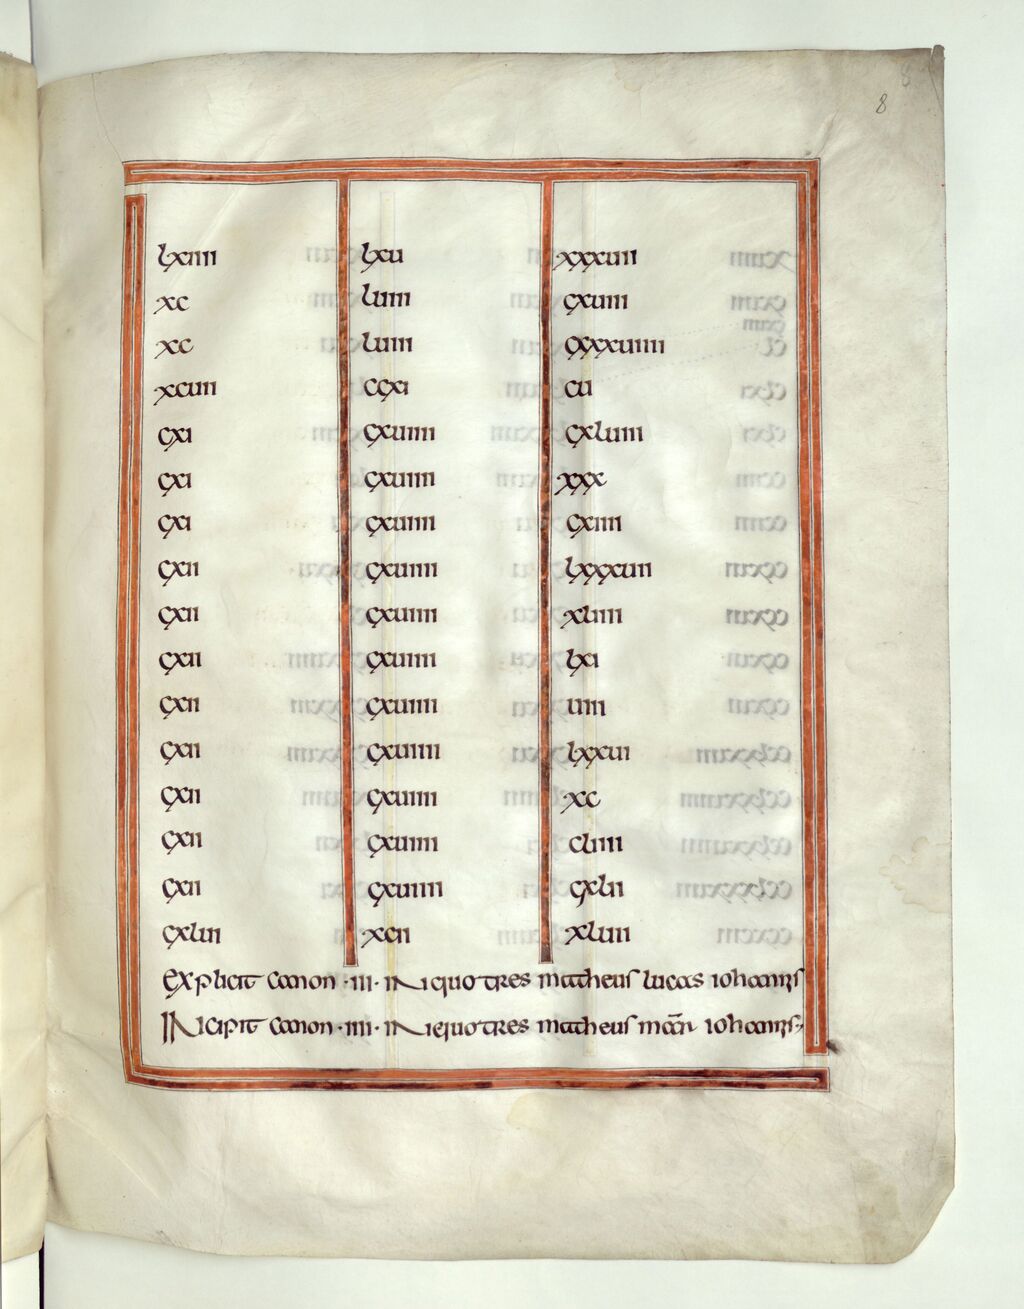 8
lxiiii lxu xxxuiii
xc luiii cxuiii
xc luiii cxxxuiiii
xcuii ccxi cu
cxi cxuiiii cxluiii
cxi cxuiiii xxx
cxi cxuiiii cxiiii
cxii cxuiiii lxxxuii
cxii cxuiiii xliiii
cxii cxuiiii lxi
cxii cxuiiii uiii
cxii cxuiiii lxxui
cxii cxuiiii xc
cxii cxuiiii cliiii
cxii cxuiiii cxlii
cxluii xcii xluii
Explicit canon ·iii· in quo tres matheus lucas iohannis
Incipit canon ·iiii· in quo tres matheus mar̄ iohannis